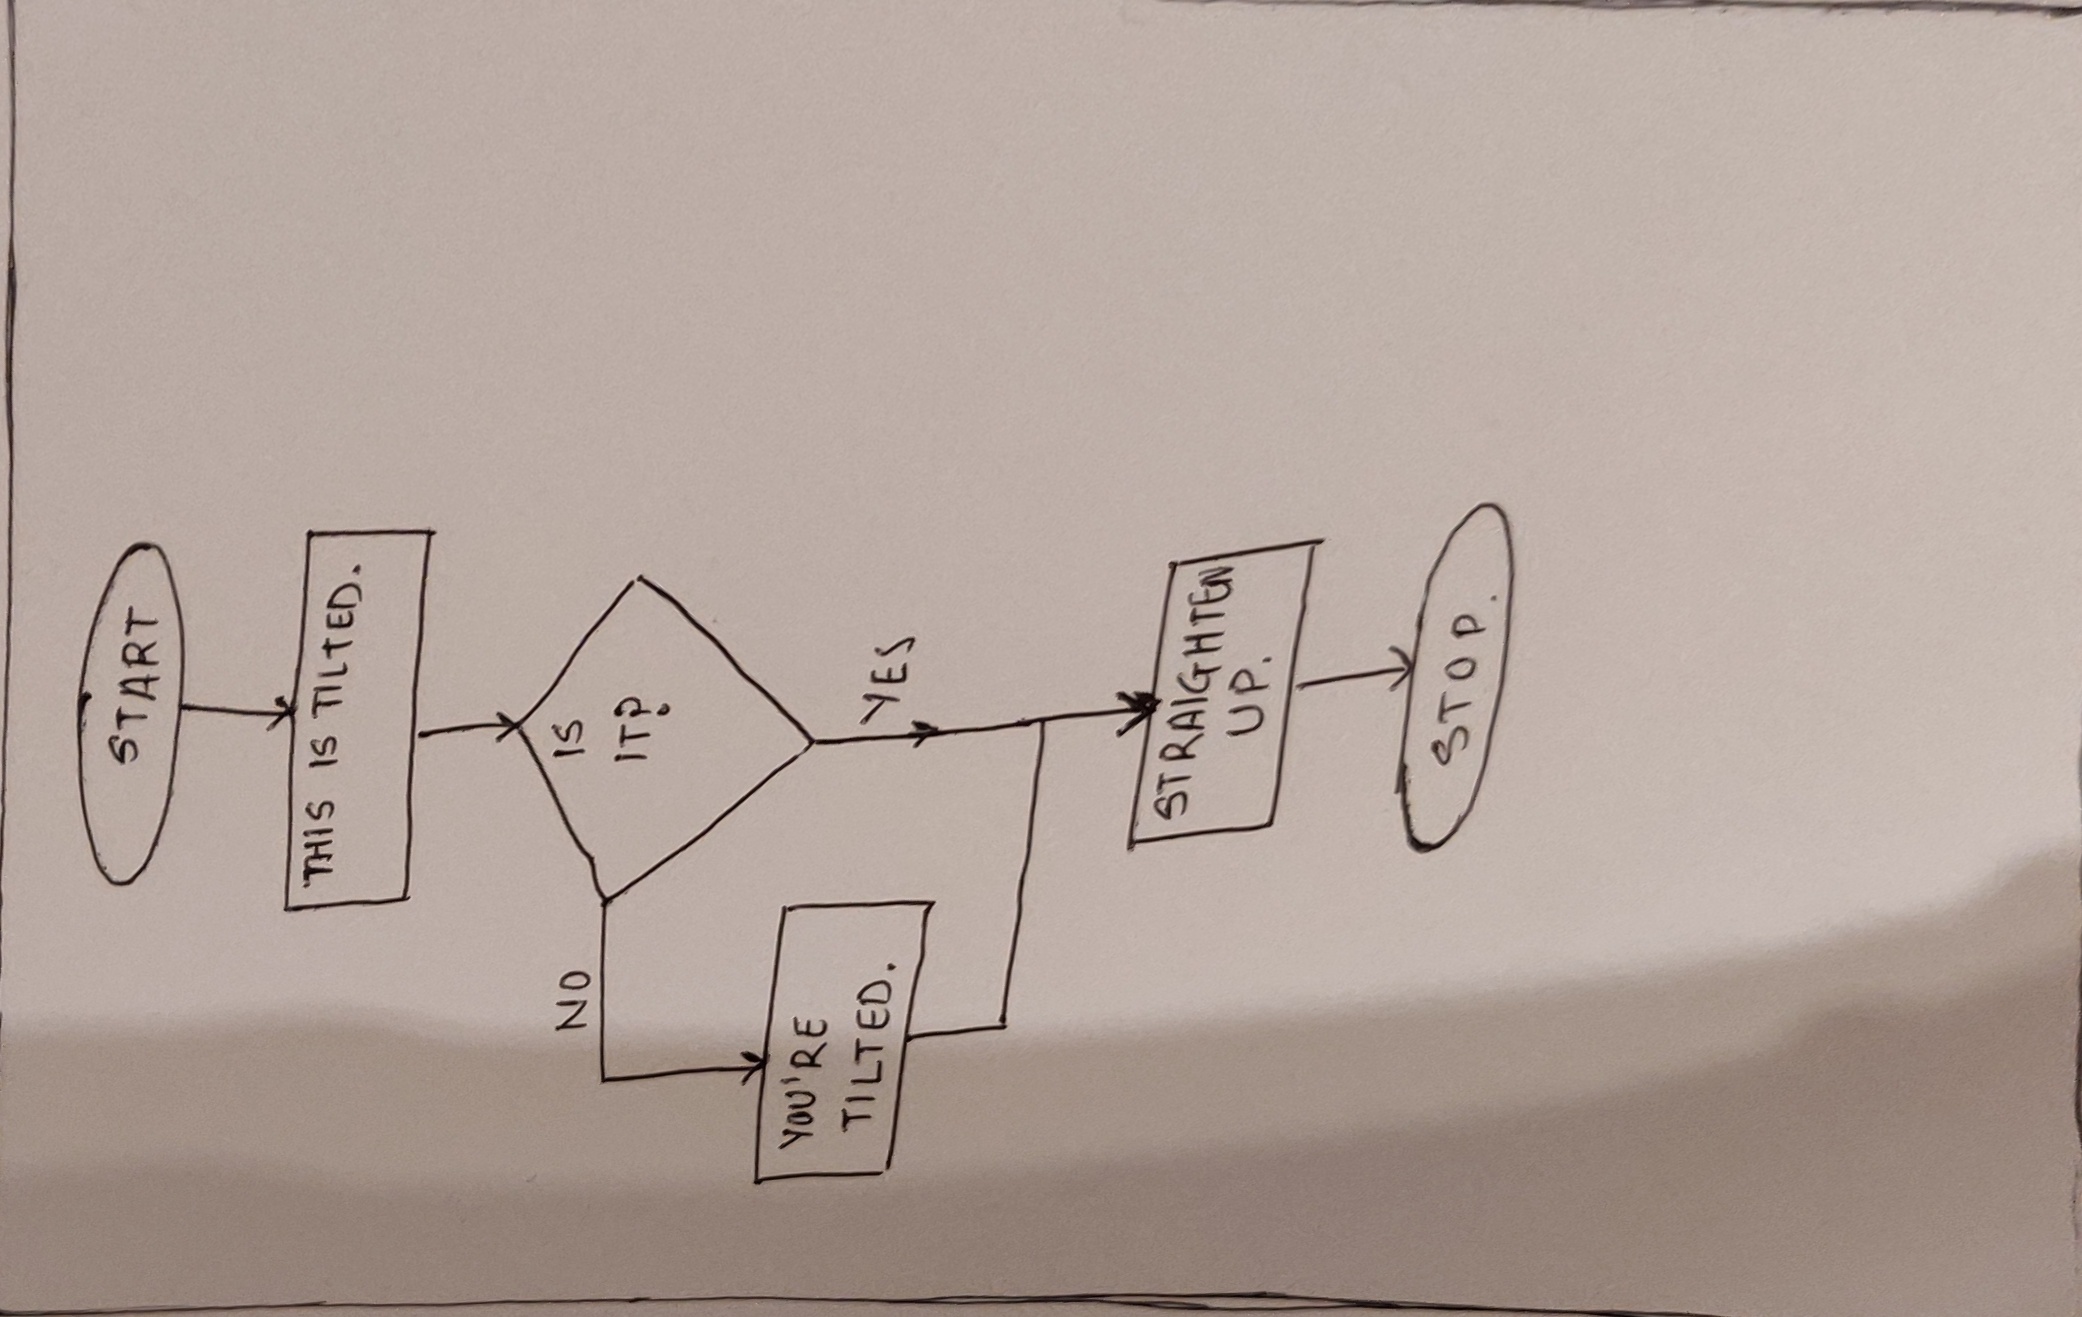 START
THIS IS TILTED.
IS
IT?
NO
YOU'RE
TILTED.
YES
STRAIGHTEN
UP.
STOP.